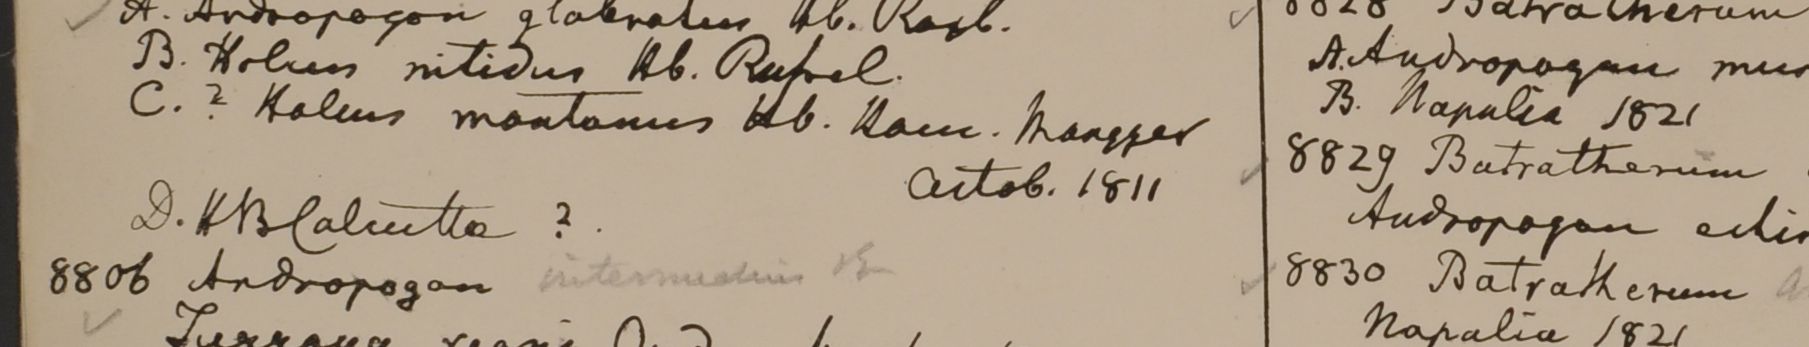 A. Andropogon glabratus Hb. Roxb.
B. Holcus nitidus Hb. Russel.
C. ? Holcus montanus Hb. Ham. Mongger
Octob. 1811
D. HB Calcutta ?.
8806 Andropogon intermedius Br
regni
8828 Batratherum
A. Andropogon mur
B. Napalia 1821
8829 Batratherum
Andropogon echin
8830 Batratherum
Napalia 1821